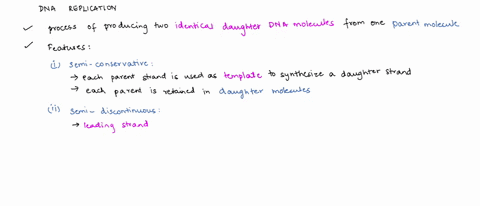 DNA REPLICATION
✓ process of producing two identical daughter DNA molecules from one parent molecule
✓ Features:
(i) Semi-conservative:
→ each parent strand is used as template to synthesize a daughter strand
→ each parent is retained in daughter molecules
(ii) Semi-discontinuous:
→ leading strand